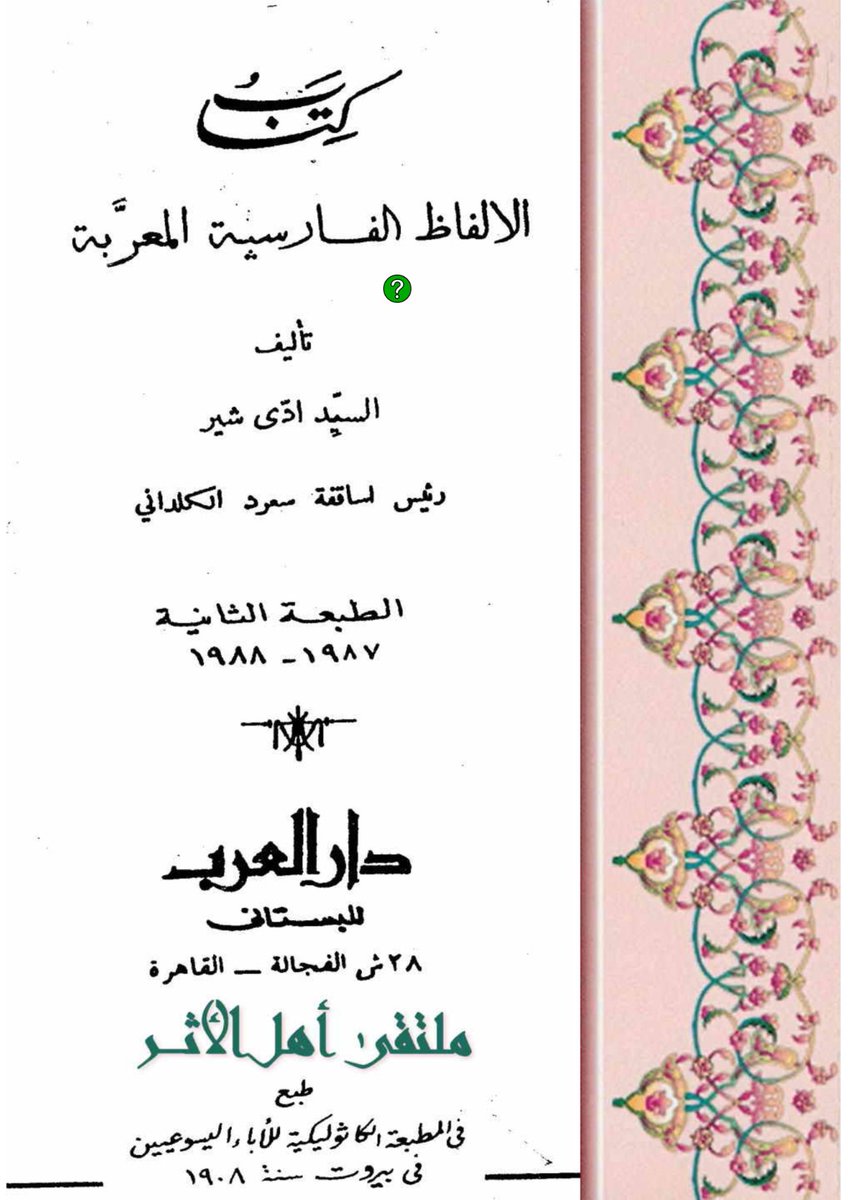 كِتَابُ
الالفاظ الفارسية المعرَّبة
?
تأليف
السيِّد ادّى شير
رئيس اساقفة سعرد الكلداني
الطبعة الثانية
١٩٨٧ - ١٩٨٨
دار العرب
للبستانى
٢٨ ش الفجالة - القاهرة
ملتقى أهل الأثر
طبع
فى المطبعة الكاثوليكية للأباء اليسوعيين
فى بيروت سنة ١٩٠٨